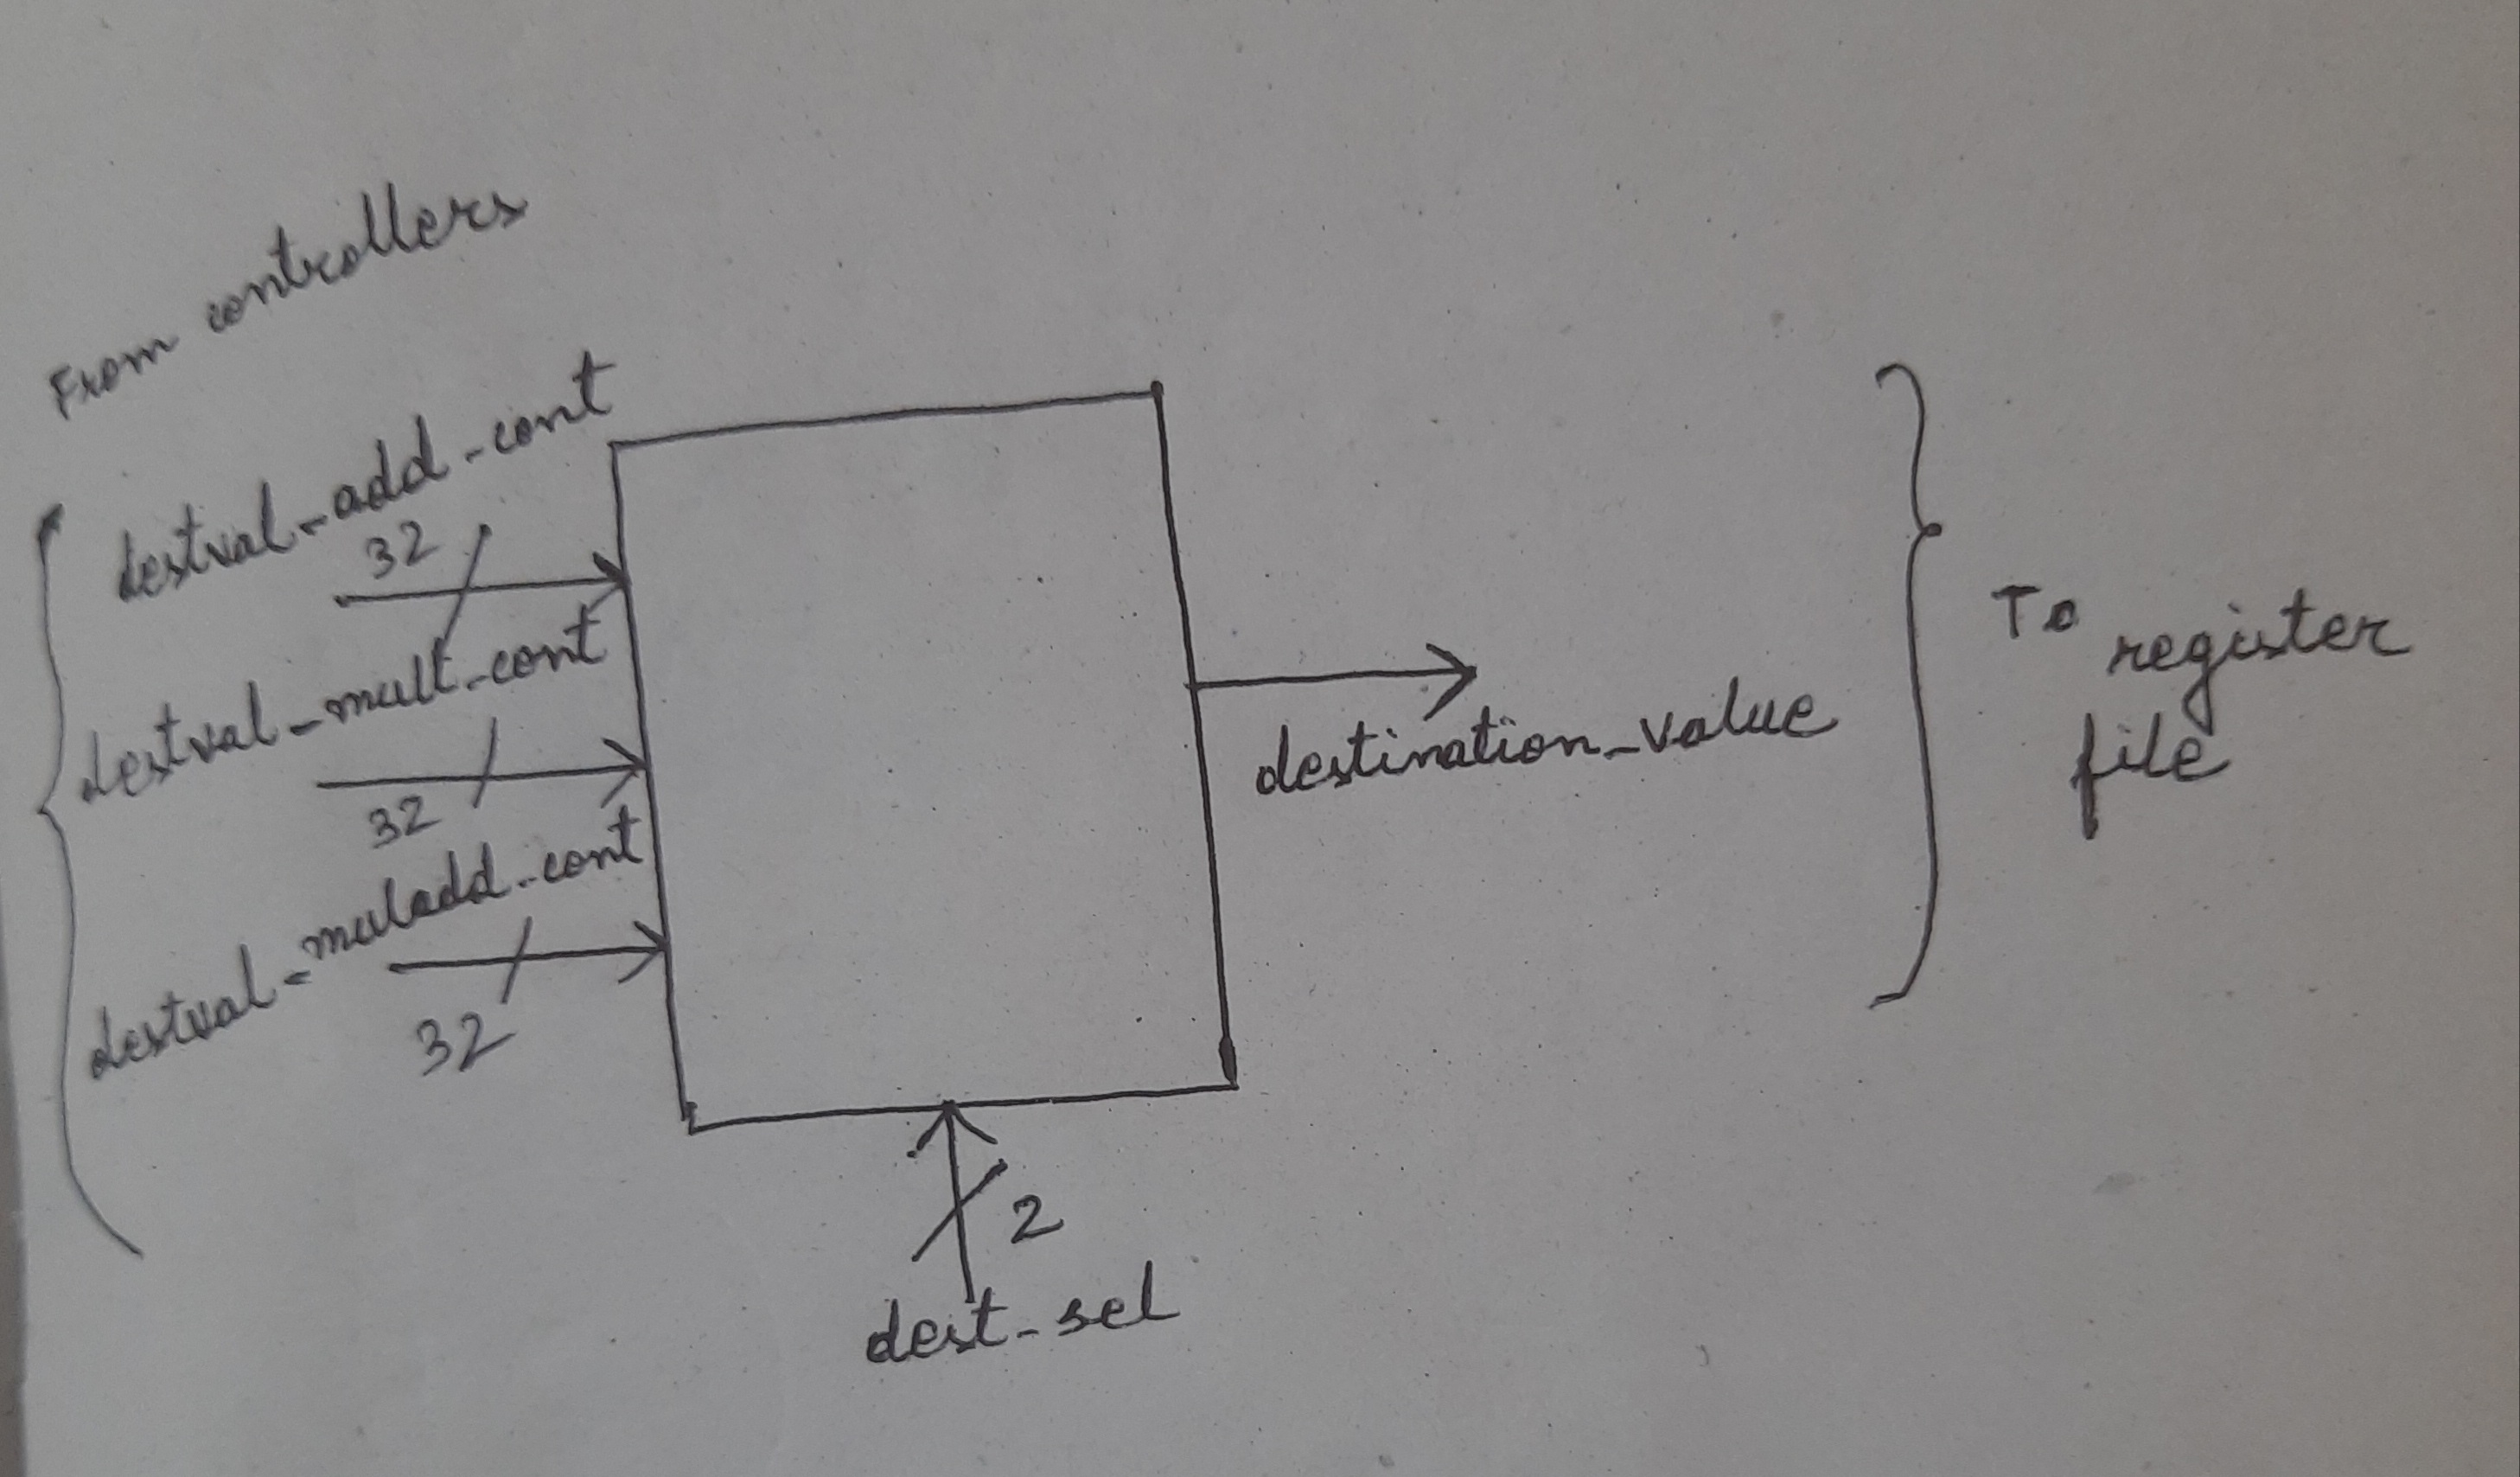 From controllers
destval_add_cont
32
destval_mult_cont
32
destval_muladd_cont
32
destination_value
To register
file
2
dest_sel